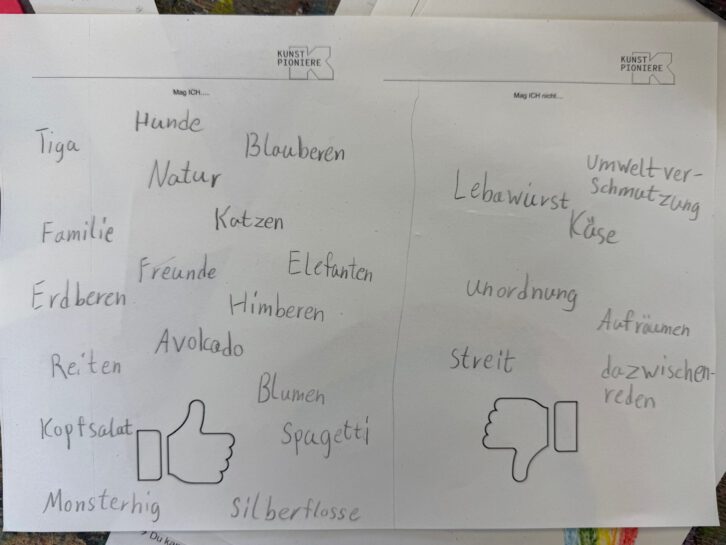 KUNST
PIONIERE
Mag ICH....
Hunde
Tiga
Blauberen
Natur
Katzen
Familie
Freunde
Elefanten
Erdberen
Himberen
Avokado
Reiten
Blumen
Kopfsalat
Spagetti
Monsterhig
Silberflosse
KUNST
PIONIERE
Mag ICH nicht...
Umweltver-
Schmutzung
Lebawurst
Käse
unordnung
Aufräumen
Streit
dazwischen-
reden